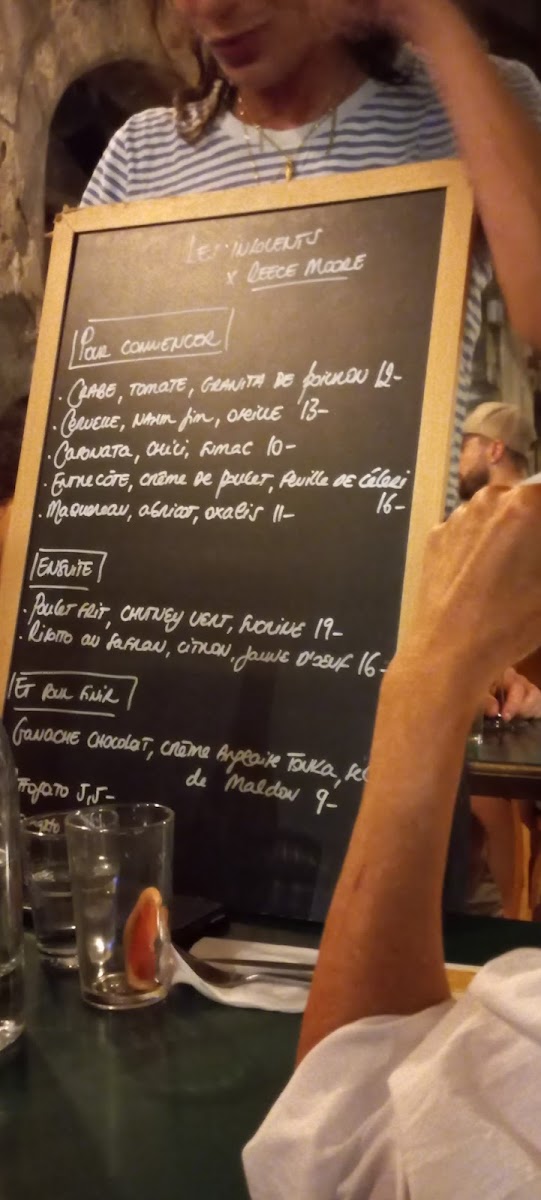 LES INNOCENTS
x REECE MOORE
POUR COMMENCER
• CRABE, TOMATE, GRANITA DE POIVRON 12-
• CERVELLE, NAHM JIM, OSEILLE 13-
• CAPONATA, CHILI, SUMAC 10-
• ENTRECÔTE, CRÈME DE POULET, FEUILLE DE CÉLERI
16-
• MAQUEREAU, ABRICOT, OXALIS 11-
ENSUITE
• POULET FRIT, CHUTNEY VERT, 19-
• RISOTTO AU SAFRAN, CITRON, JAUNE D'OEUF 16-
ET POUR FINIR
GANACHE CHOCOLAT, CRÈME ANGLAISE TONKA,
de Maldon 9-
ffogato 5,5-